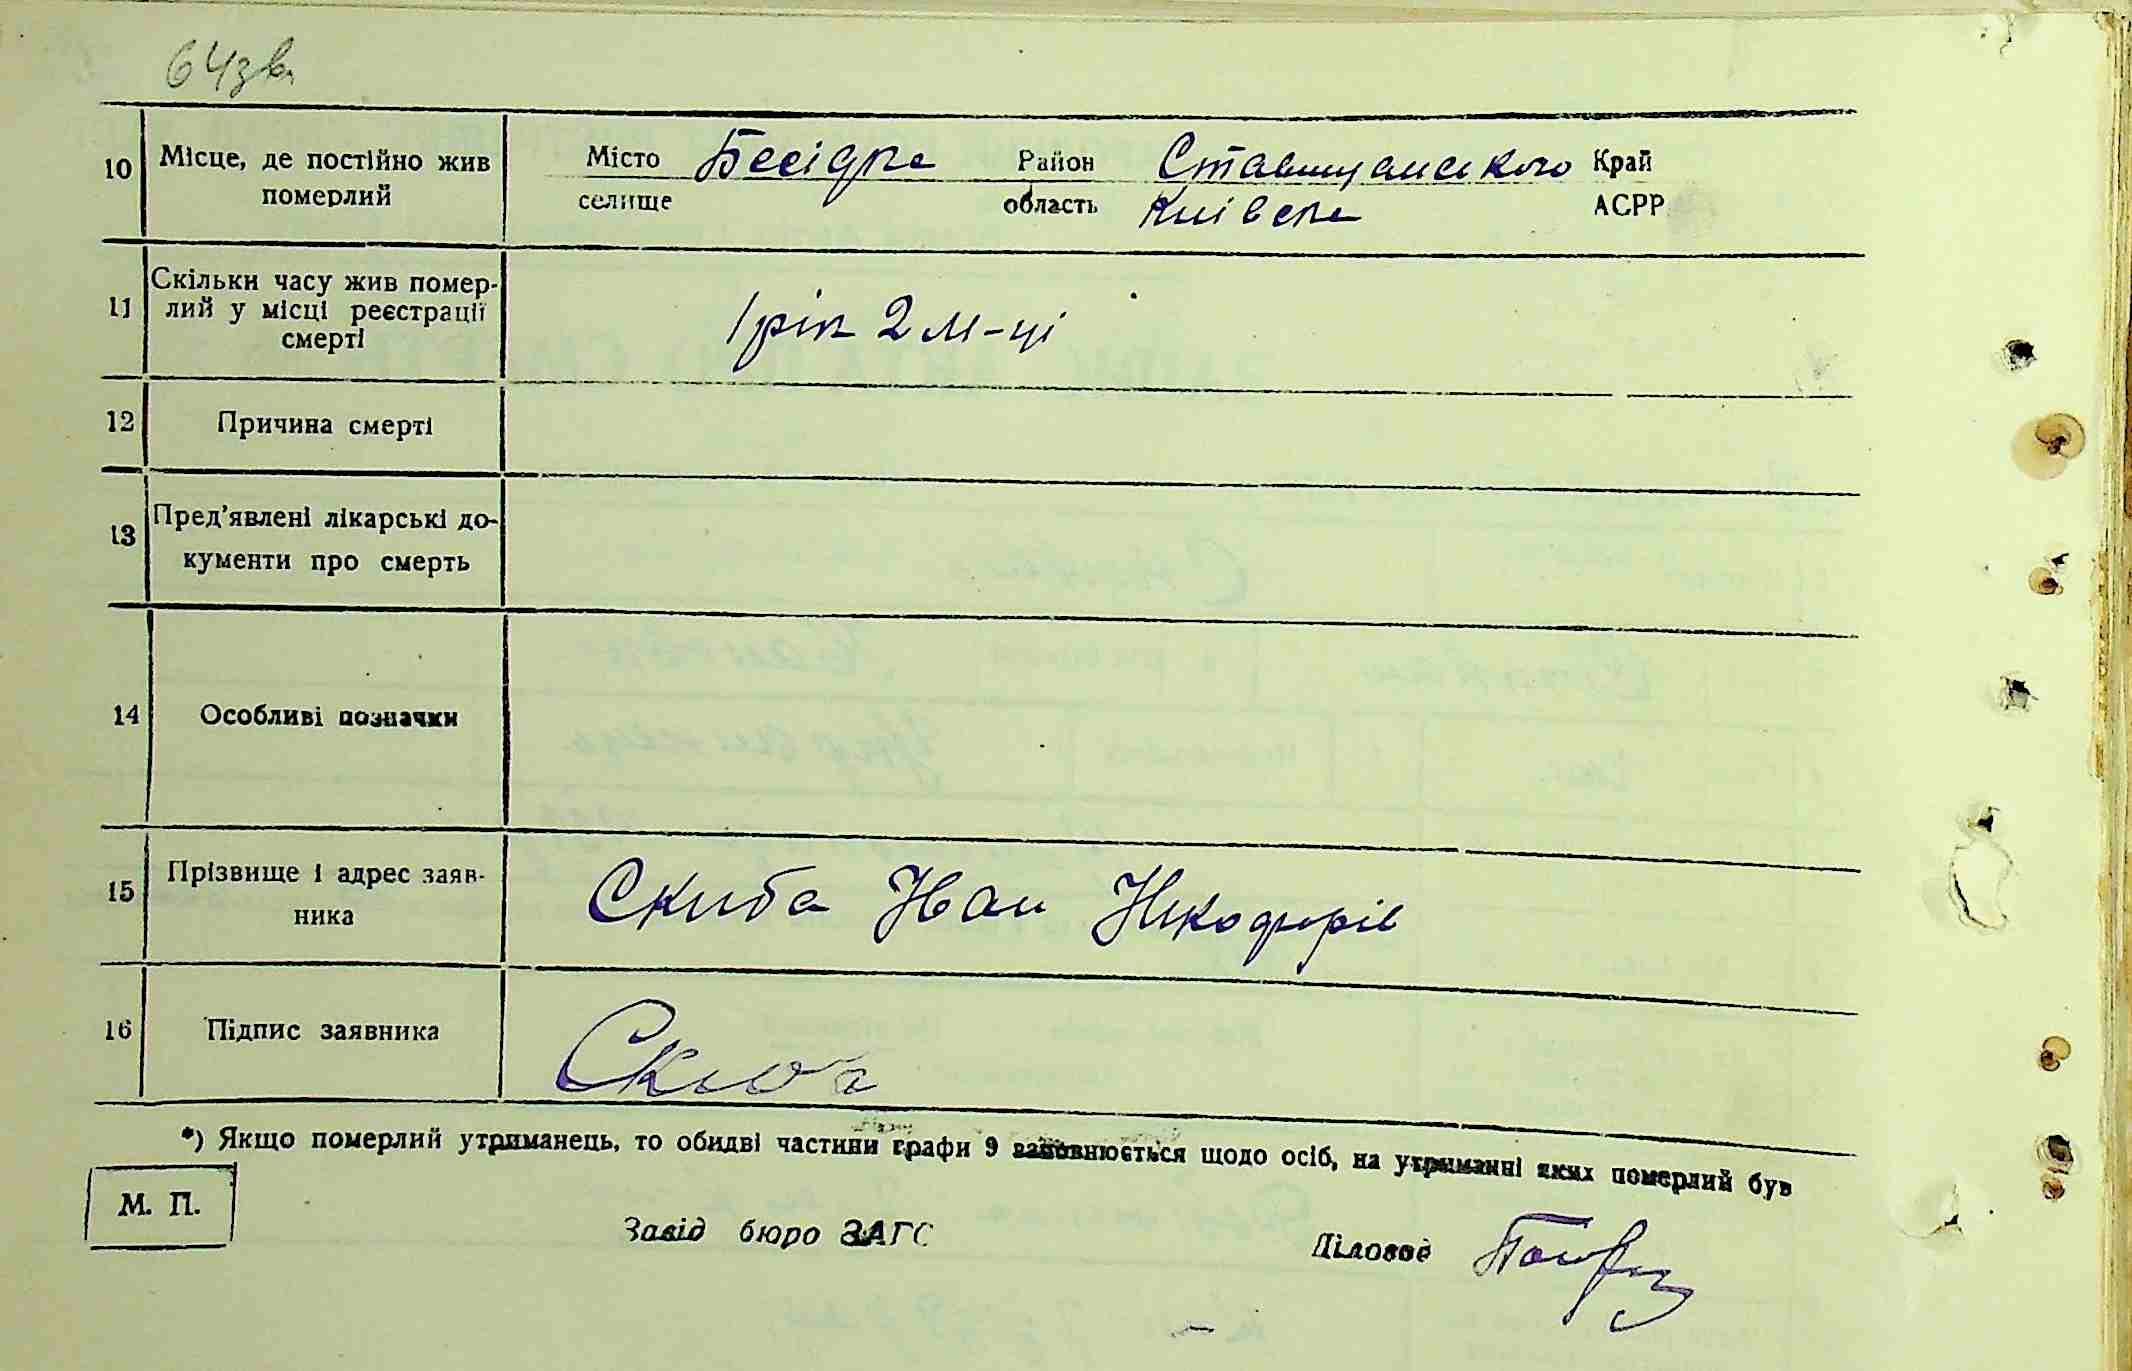 64зв.
10 Місце, де постійно жив Місто Бесідка Район Ставищанського Край
померлий селище область Київська АСРР
11 Скільки часу жив помер-
лий у місці реєстрації 1 рік 2 м-ці
смерті
12 Причина смерті
13 Пред'явлені лікарські до-
кументи про смерть
14 Особливі позначки
15 Прізвище і адрес заяв- Скиба Іван Никофорів
ника
16 Підпис заявника Скиба
*) Якщо померлий утриманець, то обидві частини графи 9 заповнюється щодо осіб, на утриманні яких померлий був
М. П.
Завід бюро ЗАГС Діловод